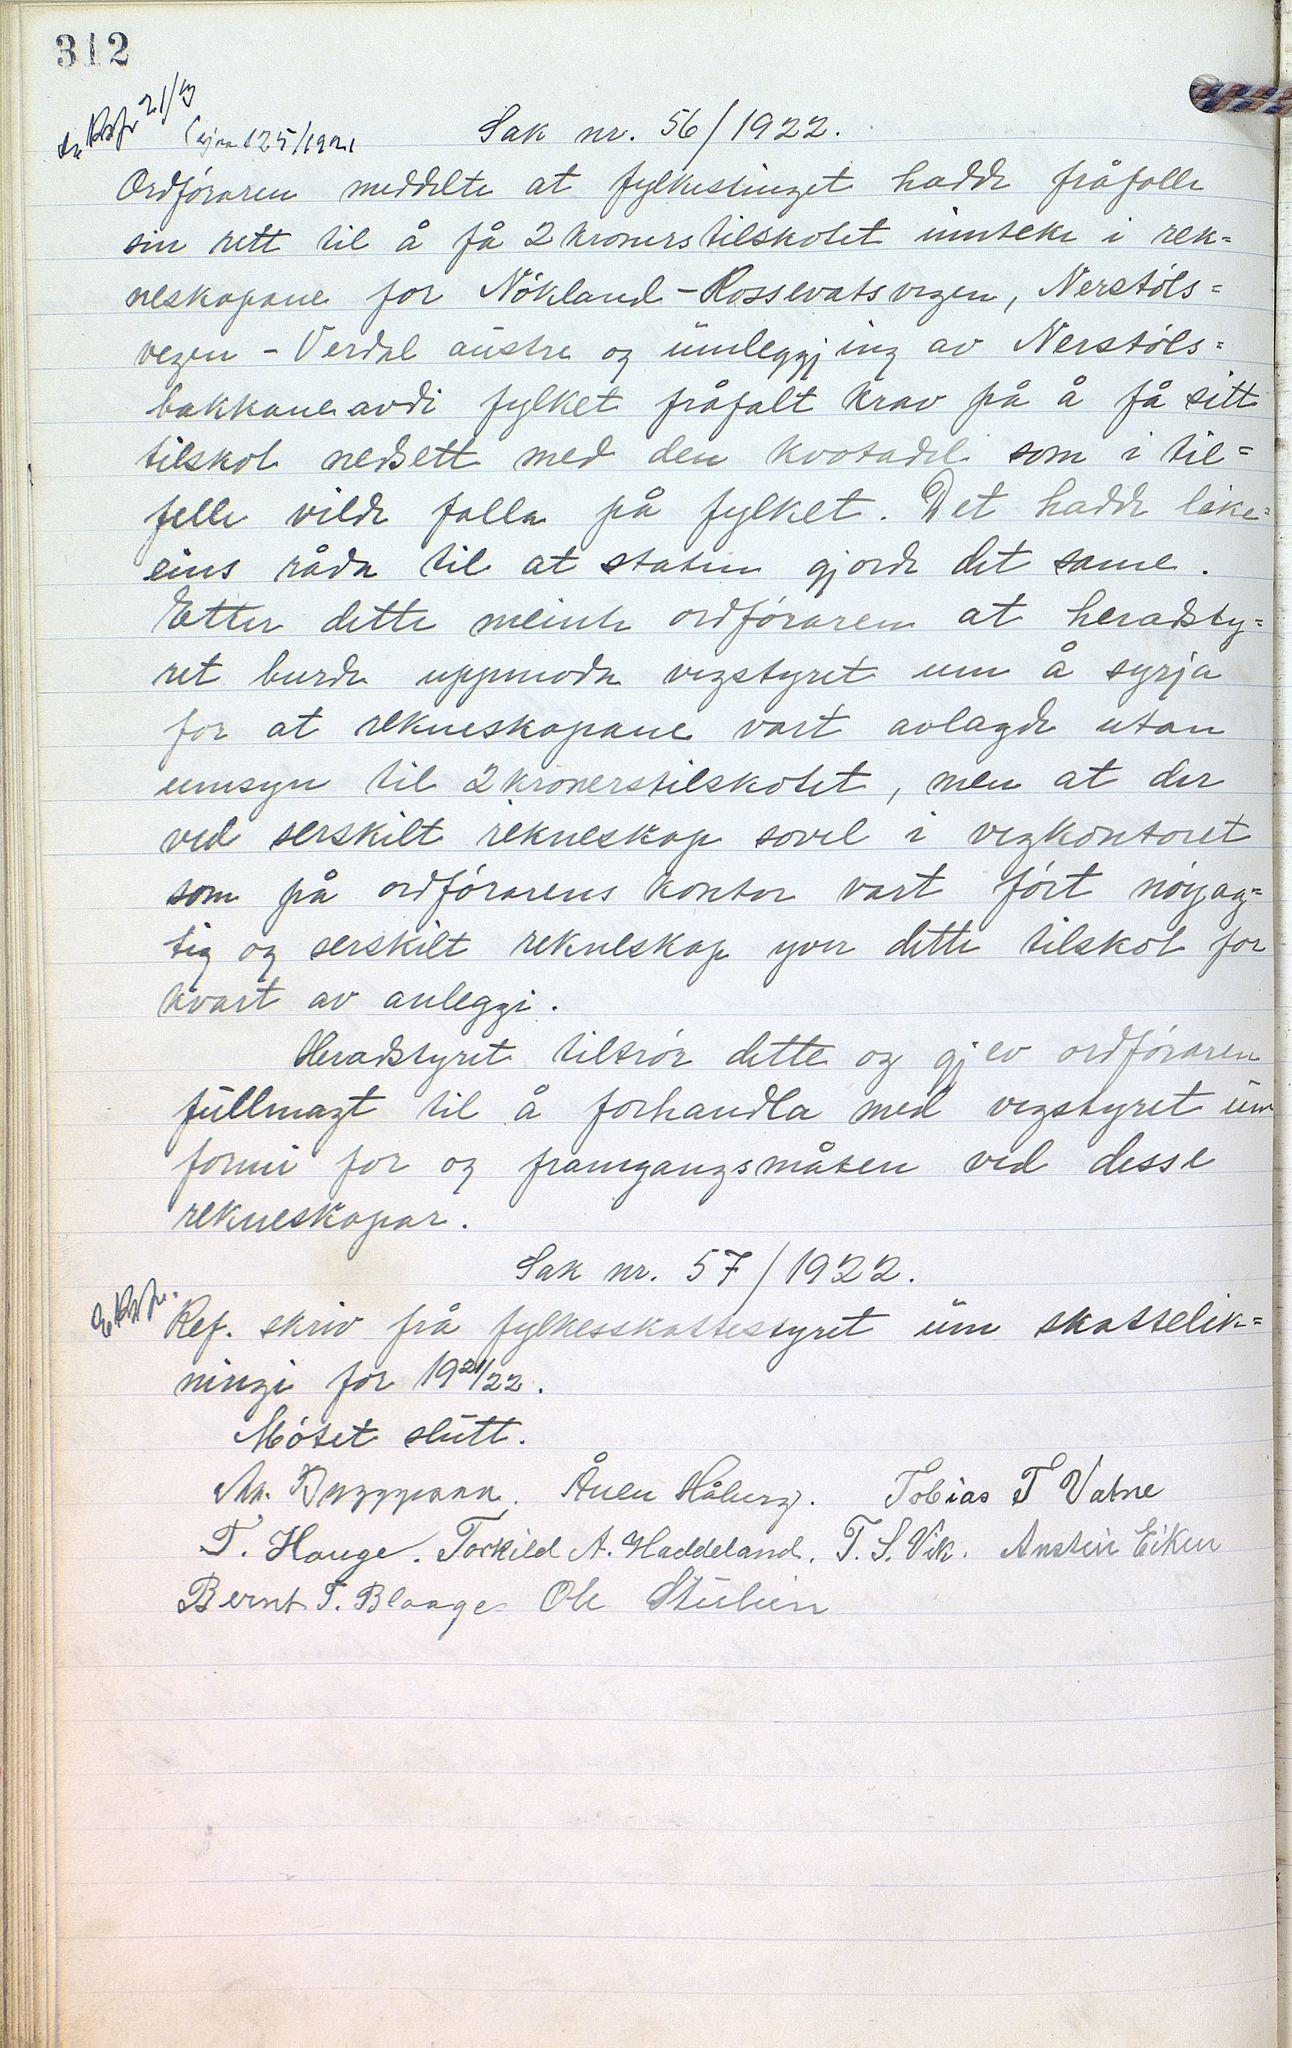 312
Sak nr. 56/1922.
125/1921
Ordføraren meddelte at fylkestinget hadde fråfalle
sin rett til å få 2 kronerstilskotet innteke i rek-
neskapane for Nökland - Rossevatsvegen, Nerstöls-
vegen - Verdal austre og umleggjing av Nerstöls-
bakkane avdi fylket fråfalt krav på å få sitt
tilskot nedsett med den kvotadel som i til-
felle vilde falla på fylket. Det hadde like-
eins råda til at staten gjorde det same.
Etter dette meinte ordføraren at heradsty-
ret burde uppmoda vegstyret um å syrja
for at rekneskapane vart avlagde utan
umsyn til 2 kronerstilskotet, men at der
ved serskilt rekneskap sovel i vegkontoret
som på ordførarens kontor vart ført nöyag-
tig og serskilt rekneskap yver dette tilskot for
kvart av anleggi.
Heradstyret tiltrör dette og gjev ordføraren
fullmagt til å forhandla med vegstyret um
formi for og framgangsmåten ved desse
rekneskapar.
Sak nr. 57/1922.
Ref. skriv frå fylkesskattestyret um skattelik-
ningi for 1921/22.
Møtet slutt.
Ånen Håberg. Tobias T Vatne
T. Hauge. Torkild A. Haddeland. T. S. Vik. Anstein Eiken
Bernt T. Blaage Ole Stulien